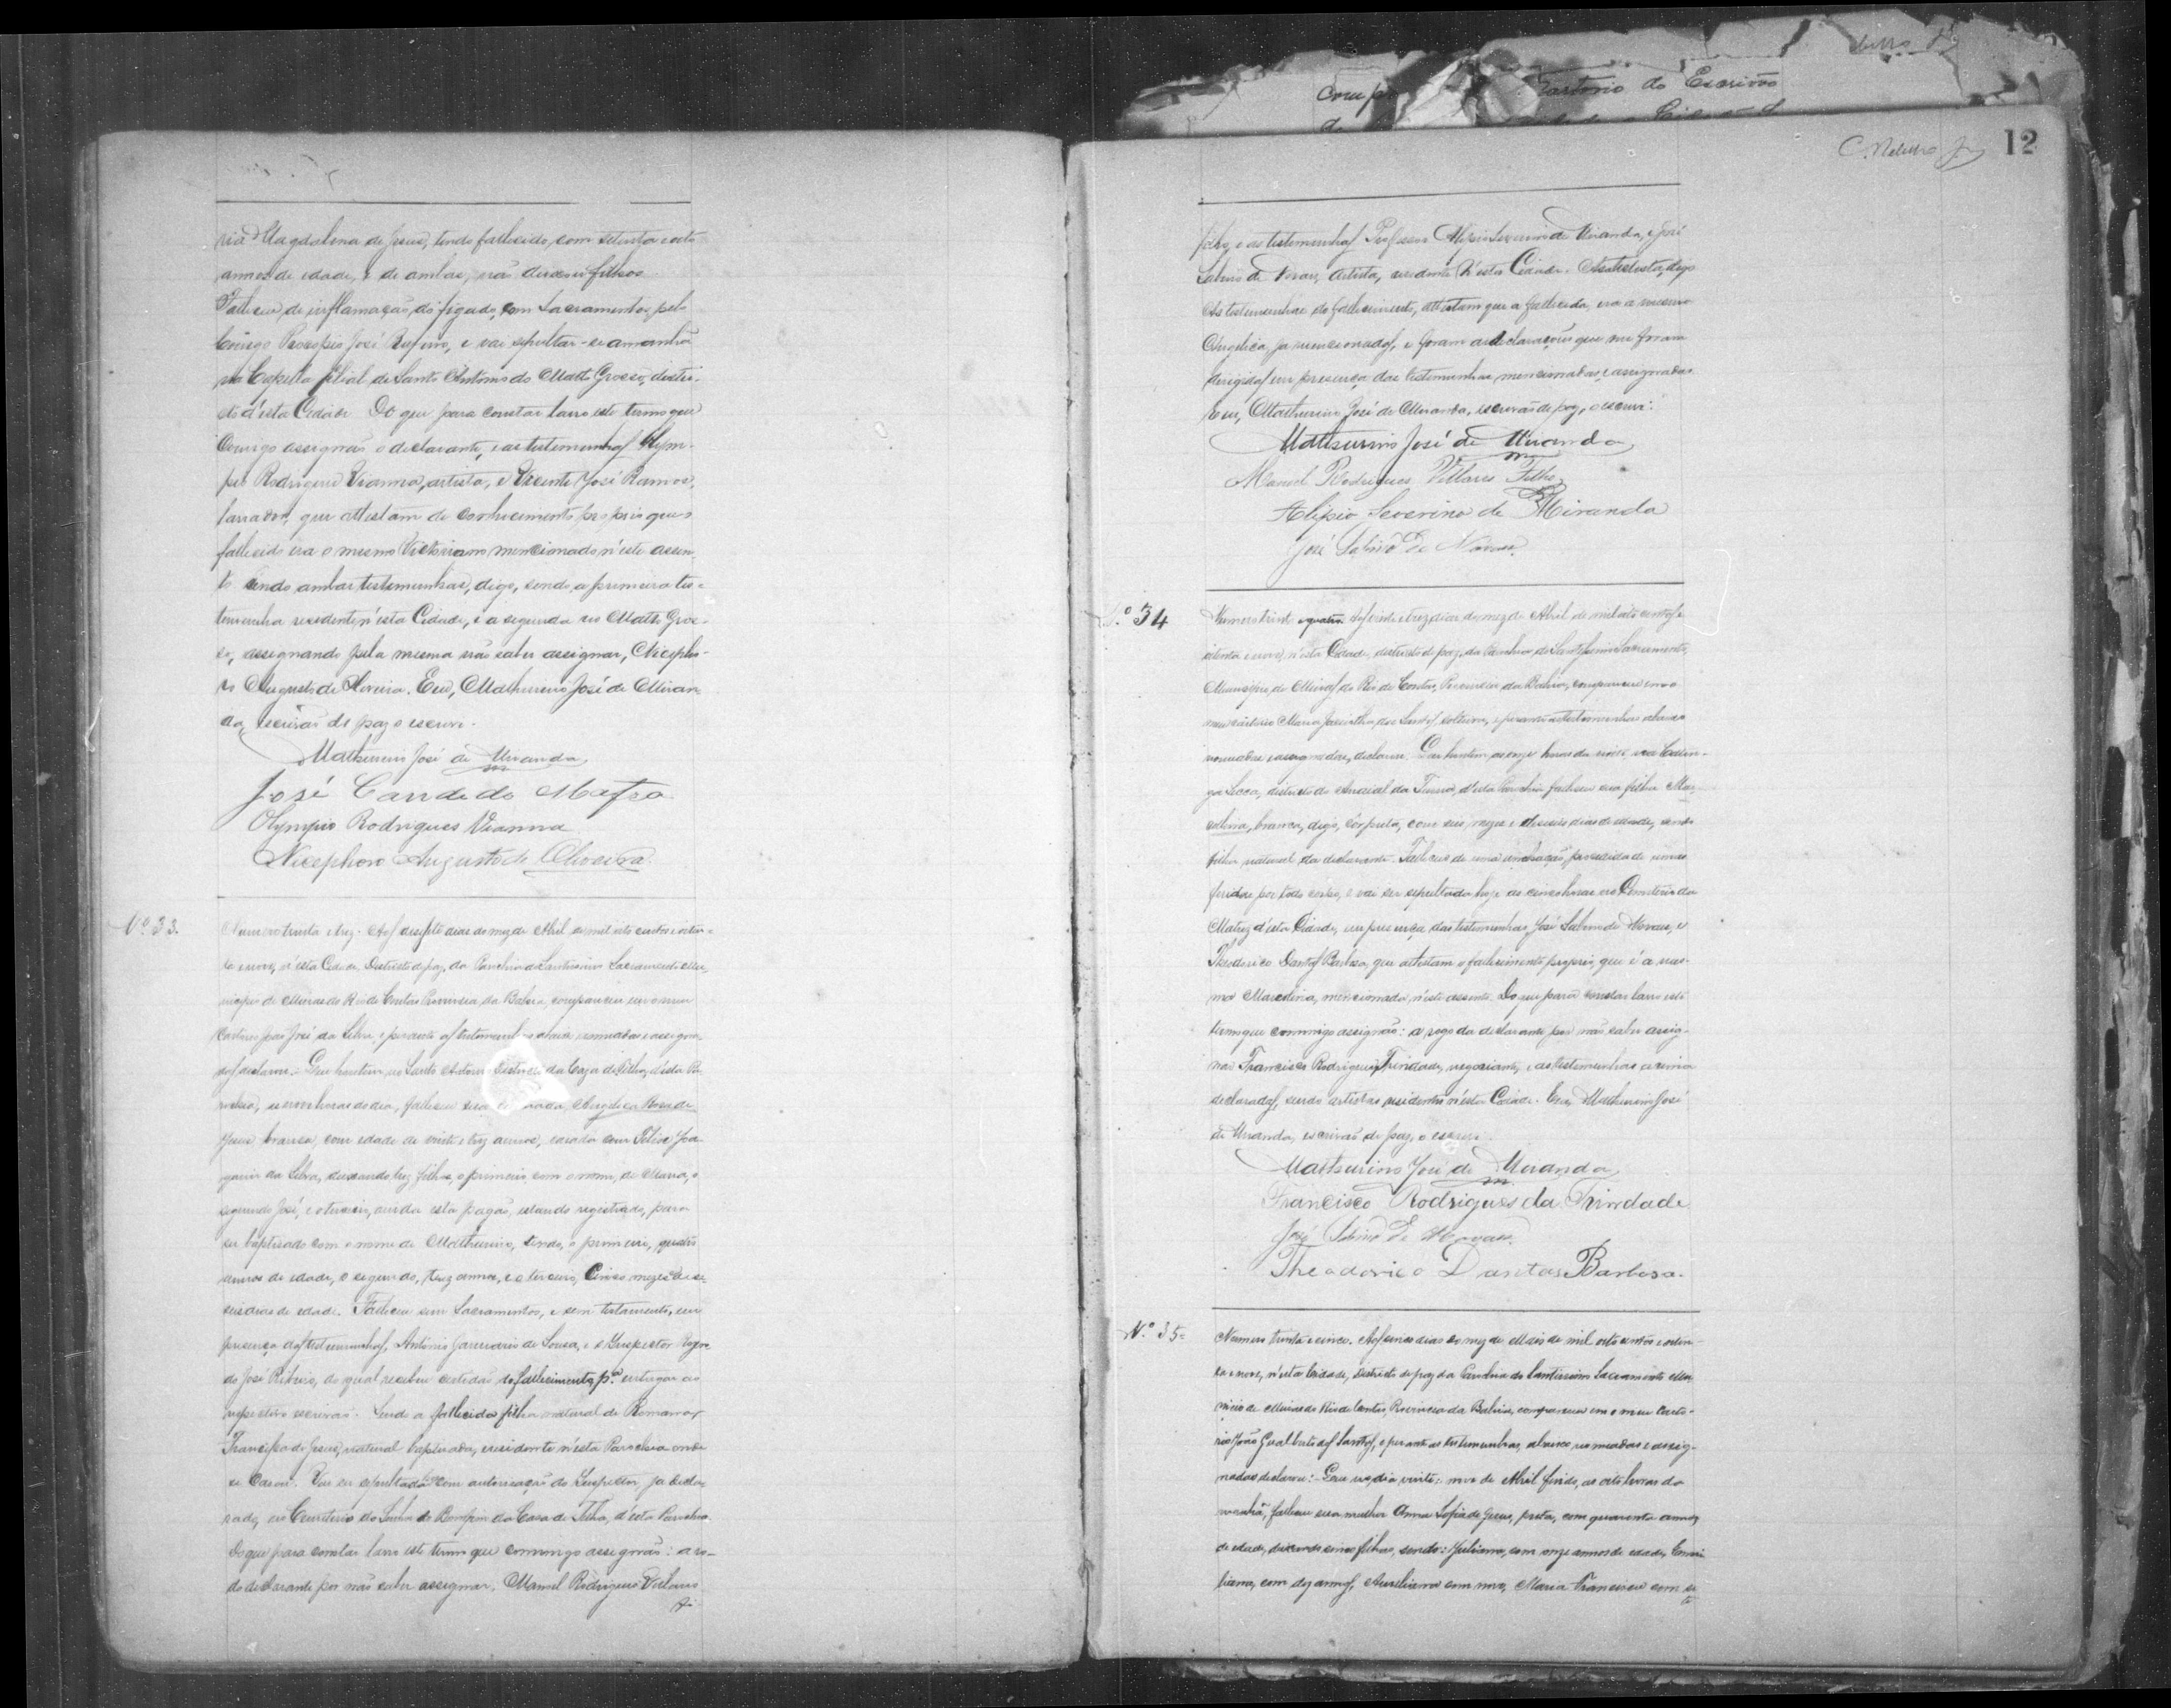 ria Magdalena de Jesus, tendo fallecido, com setenta e oito
annos de idade, e de ambas, não deixou filhos
Falleceu de inflamação do figado, com Sacramentos pelo
Conego Procopio José Rufino, e vai sepultar-se amanhã
na Capella filial de Santo Antonio do Matto Grosso, distri-
cto d'esta Cidade Do que para constar lavro este termo que
comigo assignão o declarante, e as testemunhas Olym-
pio Rodrigues Vianna, artista, e Vicente José Ramos,
lavrador, que attestam de conhecimento proprio que o
fallecido era o mesmo Victoriano mencionado n'este assen-
to sendo ambas testemunhas, digo, sendo a primeira tes-
temunha residente n'esta Cidade, e a segunda no Matto Gros-
so, assignando pela mesma não saber assignar, Nicepho-
ro Augusto de Oliveira. Eu, Mathurino José de Miran-
da, escrivão de paz o escrevi.
Mathurino José de Miranda
José Candido Mafra
Olympio Rodrigues Vianna
Nicephoro Augusto de Oliveira
Nº 33.
Numero trinta e trez. Aos desesete dias do mez de Abril de mil oito centos e oiten-
ta e nove, n'esta Cidade, Districto de paz, da Parochia do Santissimo Sacramento Mu-
nicipio de Minas do Rio de Contas Provincia da Bahia, compareceu em o meu
Cartorio José da Silva, e perante as testemunhas abaixo nomeadas e assigna-
das declarou. Que hontem, no Santo Antonio Districto da Caza de Telha, d'esta Pa-
rochia, horas do dia, falleceu sua Angelica Rosa de
Jesus branca, com edade de vinte e trez annos, casada com Joa-
quim da Silva, deixando trez filhos, o primeiro, com o nome, de Maria, o
segundo José, e o terceiro, ainda está pagão, estando registrado, para
ser baptisado com o nome de Mathurino, tendo, o primeiro, quatro
annos de idade, o segundo, trez annos, e o terceiro, cinco mezes e
seis dias de edade. Falleceu sem Sacramentos, e sem testamento, em
presença das testemunhas, Antonio Januario de Sousa, e o Inspector
do José Ribeiro, do qual recebeu certidão do fallecimento, p.ª entregar ao
respectivo escrivão. Sendo a fallecida filha natural de Romana
Francisca de Jesus, natural baptisada, e residente n'esta Parochia onde
se casou. Vai ser sepultada com autorisação do Inspector, já decla-
rado, no Cemiterio do Senhor do Bomfim da Casa de Telha, d'esta Parochia
Do que para constar lavro este termo que commigo assignão: a ro-
do declarante por não saber assignar, Manoel Rodrigues Villares
Fi-
12
filho, e as testemunhas Professor Alipio Severino de Miranda, e José
Sabino de Novaes, Artista, residentes n'esta Cidade. digo
As testemunhas do fallecimento, attestam que a fallecida, era a mesma
Angelica, já mencionada, e foram as declarações que me foram
dirigidas em presença das testemunhas mencionadas, e assignadas
Eu, Mathurino José de Miranda, escrivão de paz, o escrevi.
Mathurino José de Miranda
Manoel Rodrigues Villares Filho
Alipio Severino de Miranda
José Sabino de Novaes
Nº 34
Numero trinta e quatro. Aos vinte e trez dias do mez de Abril de mil oito centos e
oitenta e nove, n'esta Cidade, districto de paz, da Parochia do Santissimo Sacramento,
Municipio de Minas do Rio de Contas, Provincia da Bahia, compareceu em o
meu cartorio Maria Jacintha dos Santos, solteira, e perante as testemunhas abaixo
nomeadas e assignadas, declarou. Que hontem as onze horas da noite na Catin-
ga Secca, districto do Arraial da Furna, d'esta Parochia falleceu sua filha Mar-
colina, branca, digo, côr preta, com seis mezes e deseseis dias de idade, sendo
filha natural da declarante. Falleceu de uma procedida de umas
feridas por todo corpo, e vai ser sepultada hoje as cinco horas no Cemiterio da
Matriz d'esta Cidade, em presença das testemunhas José Sabino de Novaes, e
Theodorico Dantas Barbosa, que attestam o fallecimento proprio, que é a mes-
ma Marcolina, mencionada n'este assento. Do que para constar lavro este
termo que commigo assignão: a rogo da declarante por não saber assig-
nar Francisco Rodrigues Trindade, negociante, e as testemunhas acima
declaradas, sendo artistas residentes n'esta Cidade. Eu, Mathurino José
de Miranda, escrivão de paz, o escrevi.
Mathurino José de Miranda
Francisco Rodrigues da Trindade
José Sabino de Novaes
Theodorico Dantas Barbosa.
Nº 35
Numero trinta e cinco. Aos cinco dias do mez de Maio de mil oito centos e oiten-
ta e nove, n'esta Cidade, districto de paz da Parochia do Santissimo Sacramento Mu-
nicipio de Minas do Rio de Contas, Provincia da Bahia, compareceu em o meu Carto-
rio João Gualberto dos Santos, e perante as testemunhas, abaixo nomeadas e assig-
nadas declarou:- Que no dia vinte: nove de Abril findo, as oito horas da
manhã, falleceu sua mulher Anna Sofia de Jesus, preta, com quarenta annos
de idade, deixando cinco filhos, sendo: Juliana, com onze annos de edade,
com dez annos, Aureliana com nove, Maria Francisca com se-
te